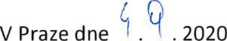 V Praze dne 9. 9. 2020